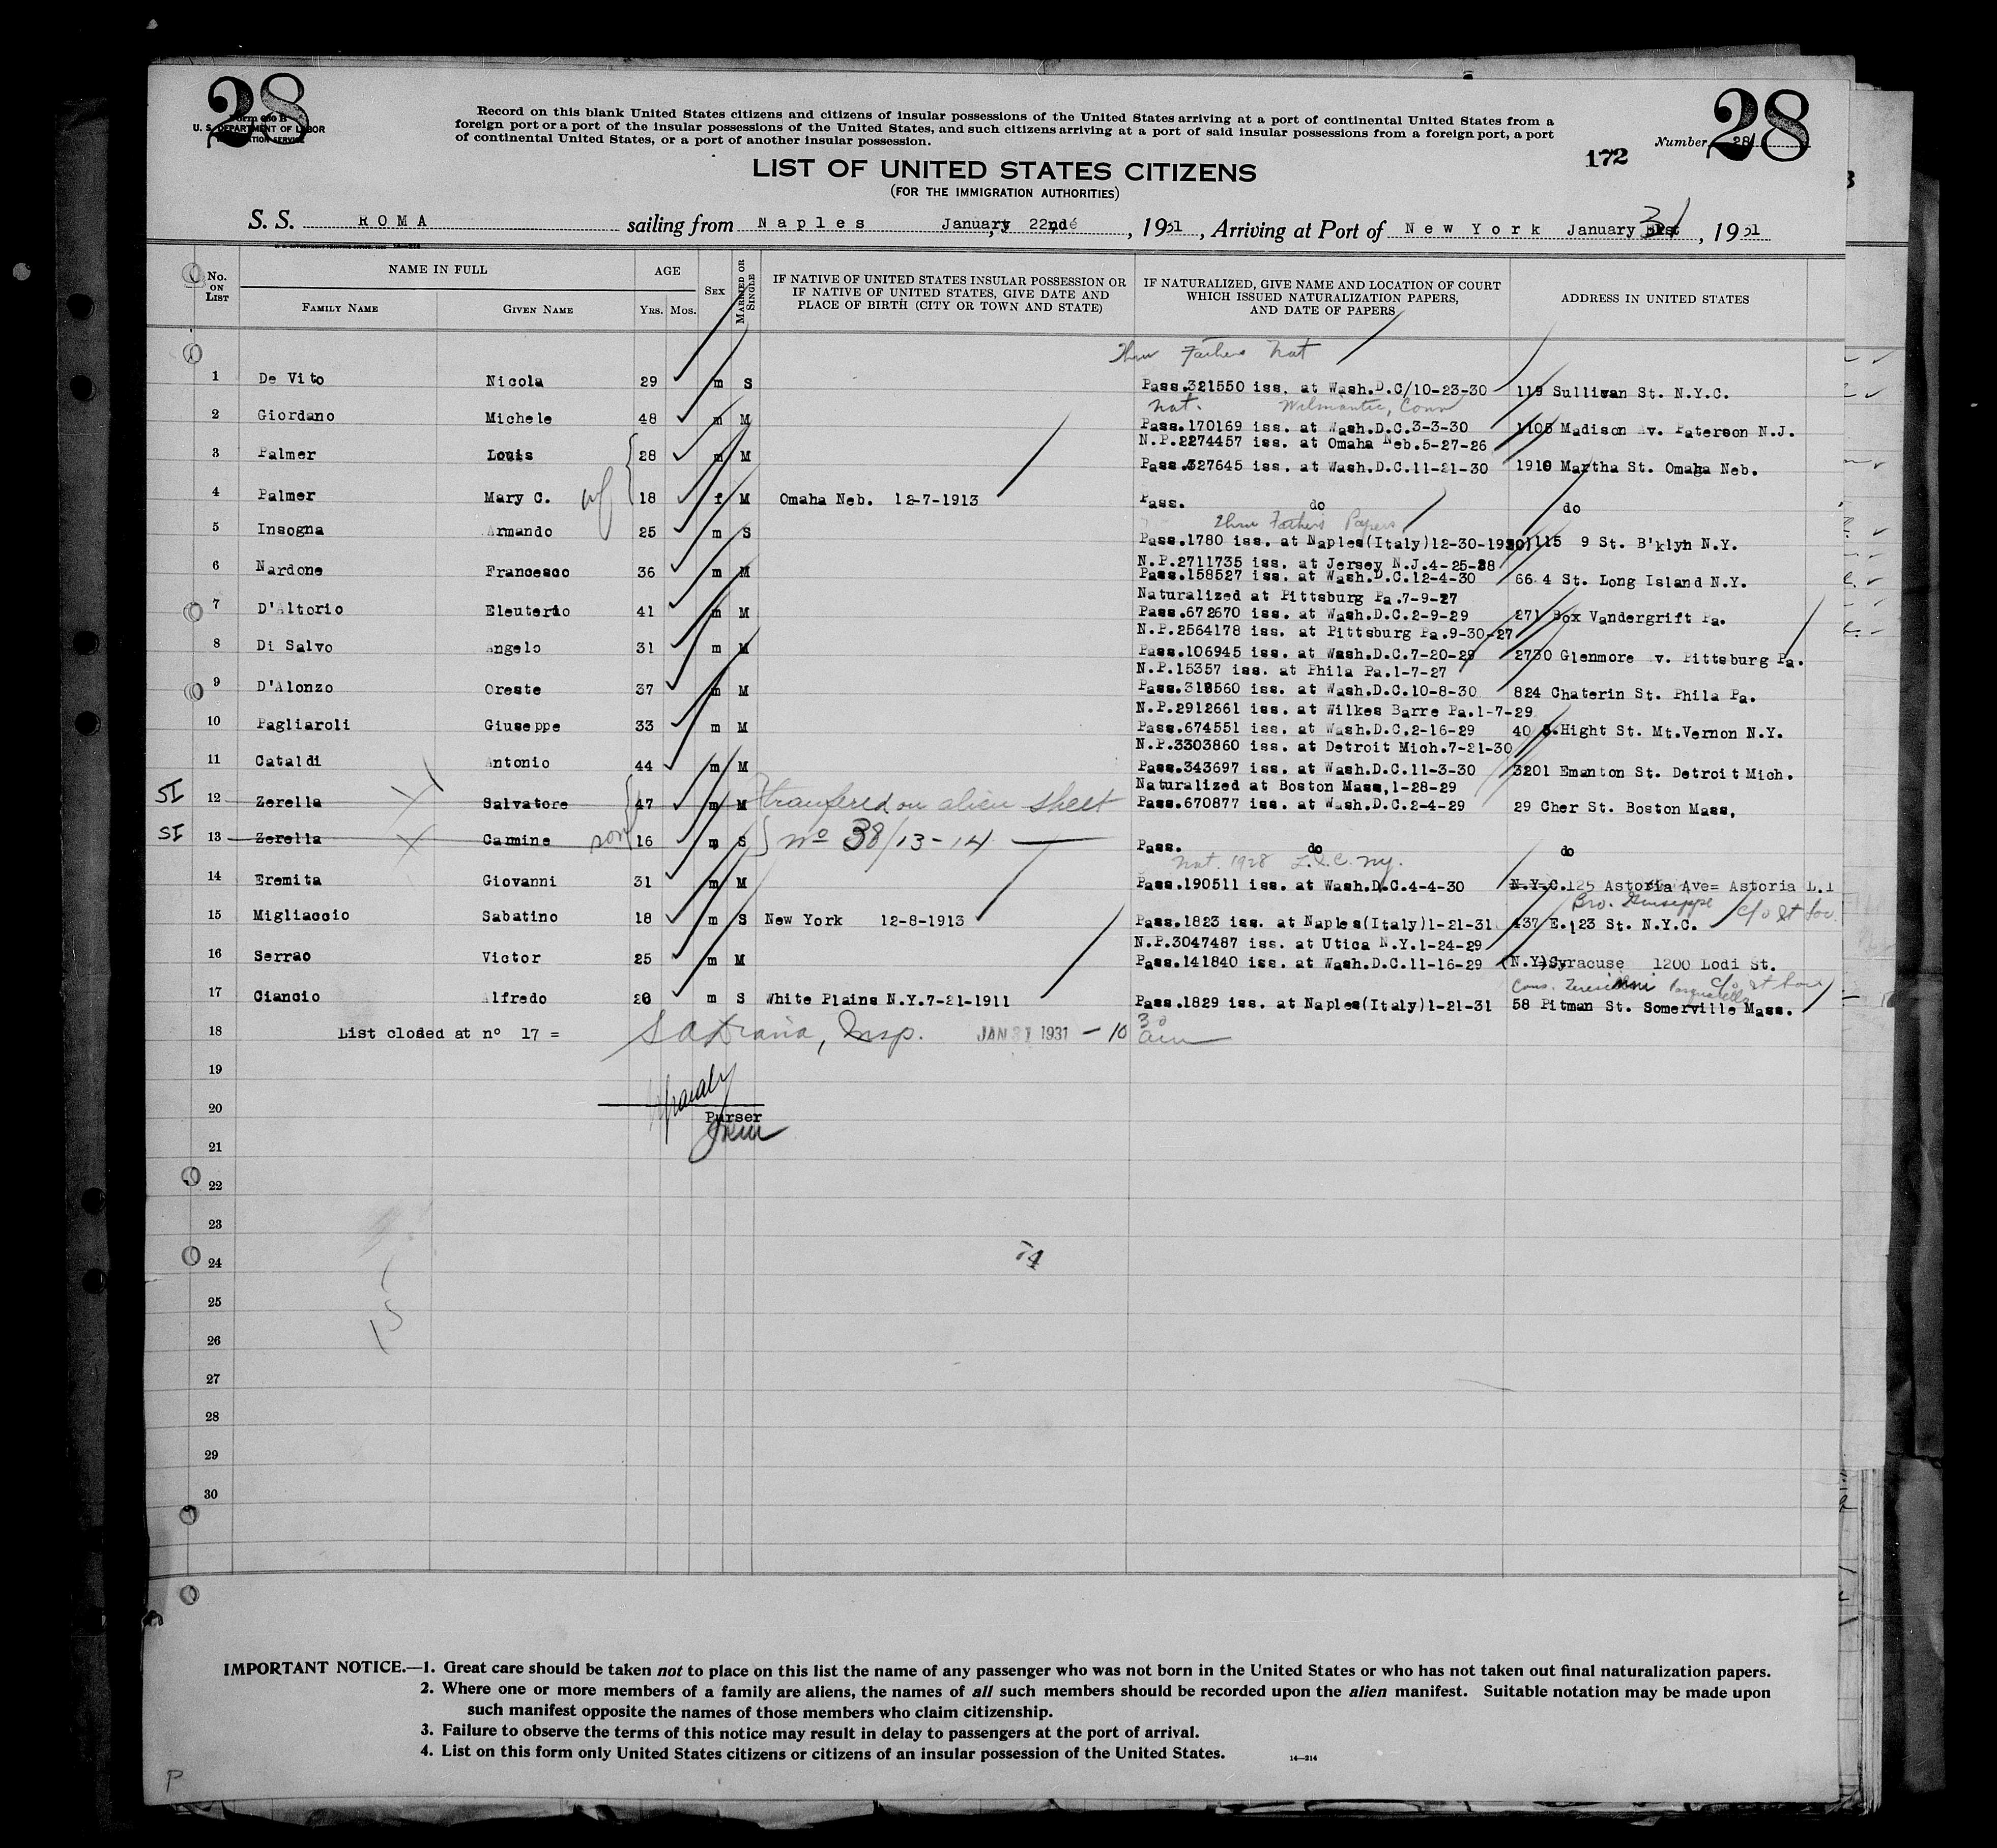 28
28
Form 630 B
U. S. DEPARTMENT OF LABOR
Record on this blank United States citizens and citizens of insular possessions of the United States arriving at a port of continental United States from a
foreign port or a port of the insular possessions of the United States, and such citizens arriving at a port of said insular possessions from a foreign port, a port
of continental United States, or a port of another insular possession.
Number 28
172
LIST OF UNITED STATES CITIZENS
(FOR THE IMMIGRATION AUTHORITIES)
S. S. ROMA sailing from Naples January 22nd, 1931, Arriving at Port of New York January 31, 1931
No. ON LIST
NAME IN FULL
FAMILY NAME GIVEN NAME
AGE
YRS. MOS.
SEX
MARRIED OR SINGLE
IF NATIVE OF UNITED STATES INSULAR POSSESSION OR
IF NATIVE OF UNITED STATES, GIVE DATE AND
PLACE OF BIRTH (CITY OR TOWN AND STATE)
IF NATURALIZED, GIVE NAME AND LOCATION OF COURT
WHICH ISSUED NATURALIZATION PAPERS,
AND DATE OF PAPERS
ADDRESS IN UNITED STATES
Thru Fathers Nat
1 De Vito Nicola 29 m S Pass.321550 iss. at Wash.D.C/10-23-30 119 Sullivan St. N.Y.C.
Nat. Wilmantic, Conn
2 Giordano Michele 48 m M Pass.170169 iss. at Wash.D.C.3-3-30 1105 Madison Av. Paterson N.J.
N.P.2274457 iss. at Omaha Neb.5-27-26
3 Palmer Louis 28 m M Pass.327645 iss. at Wash.D.C.11-21-30 1910 Martha St. Omaha Neb.
4 Palmer Mary C. wf 18 f M Omaha Neb. 12-7-1913 Pass. do do
thru Fathers Papers
5 Insogna Armando 25 m S Pass.1780 iss. at Naples(Italy)12-30-1930) 115 9 St. B'klyn N.Y.
N.P.2711735 iss. at Jersey N.J.4-25-28
6 Nardone Francesco 36 m M Pass.158527 iss. at Wash.D.C.12-4-30 66 4 St. Long Island N.Y.
Naturalized at Pittsburg Pa.7-9-27
7 D'Altorio Eleuterio 41 m M Pass.672670 iss. at Wash.D.C.2-9-29 271 Box Vandergrift Pa.
N.P.2564178 iss. at Pittsburg Pa.9-30-27
8 Di Salvo Angelo 31 m M Pass.106945 iss. at Wash.D.C.7-20-29 2730 Glenmore Av. Pittsburg Pa.
N.P.15357 iss. at Phila Pa.1-7-27
9 D'Alonzo Oreste 37 m M Pass.318560 iss. at Wash.D.C.10-8-30 824 Chaterin St. Phila Pa.
N.P.2912661 iss. at Wilkes Barre Pa.1-7-29
10 Pagliaroli Giuseppe 33 m M Pass.674551 iss. at Wash.D.C.2-16-29 40 S.Hight St. Mt.Vernon N.Y.
N.P.3303860 iss. at Detroit Mich.7-21-30
11 Cataldi Antonio 44 m M Pass.343697 iss. at Wash.D.C.11-3-30 3201 Emanton St. Detroit Mich.
Naturalized at Boston Mass,1-28-29
SI 12 Zerella Salvatore 47 m M transfered on alien sheet Pass.670877 iss. at Wash.D.C.2-4-29 29 Cher St. Boston Mass,
SI 13 Zerella Carmine son 16 m S no 38/13-14 Pass. do do
Nat. 1928 L.I.C. N.Y.
14 Eremita Giovanni 31 m M Pass.190511 iss. at Wash.D.C.4-4-30 N.Y.C.125 Astoria Ave= Astoria L.I
Bro. Giuseppe c/o
15 Migliaccio Sabatino 18 m S New York 12-8-1913 Pass.1823 iss. at Naples(Italy)1-21-31 437 E.123 St. N.Y.C.
N.P.3047487 iss. at Utica N.Y.1-24-29
16 Serrao Victor 25 m M Pass.141840 iss. at Wash.D.C.11-16-29 (N.Y)Syracuse 1200 Lodi St.
17 Ciancio Alfredo 20 m S White Plains N.Y.7-21-1911 Pass.1829 iss. at Naples(Italy)1-21-31 58 Pitman St. Somerville Mass.
18 List closed at n° 17 = Insp. JAN 31 1931 - 10 30 am
19
20
Purser
21
22
23
24
25
26
27
28
29
30
IMPORTANT NOTICE.—1. Great care should be taken not to place on this list the name of any passenger who was not born in the United States or who has not taken out final naturalization papers.
2. Where one or more members of a family are aliens, the names of all such members should be recorded upon the alien manifest. Suitable notation may be made upon
such manifest opposite the names of those members who claim citizenship.
3. Failure to observe the terms of this notice may result in delay to passengers at the port of arrival.
4. List on this form only United States citizens or citizens of an insular possession of the United States.
14—214
P